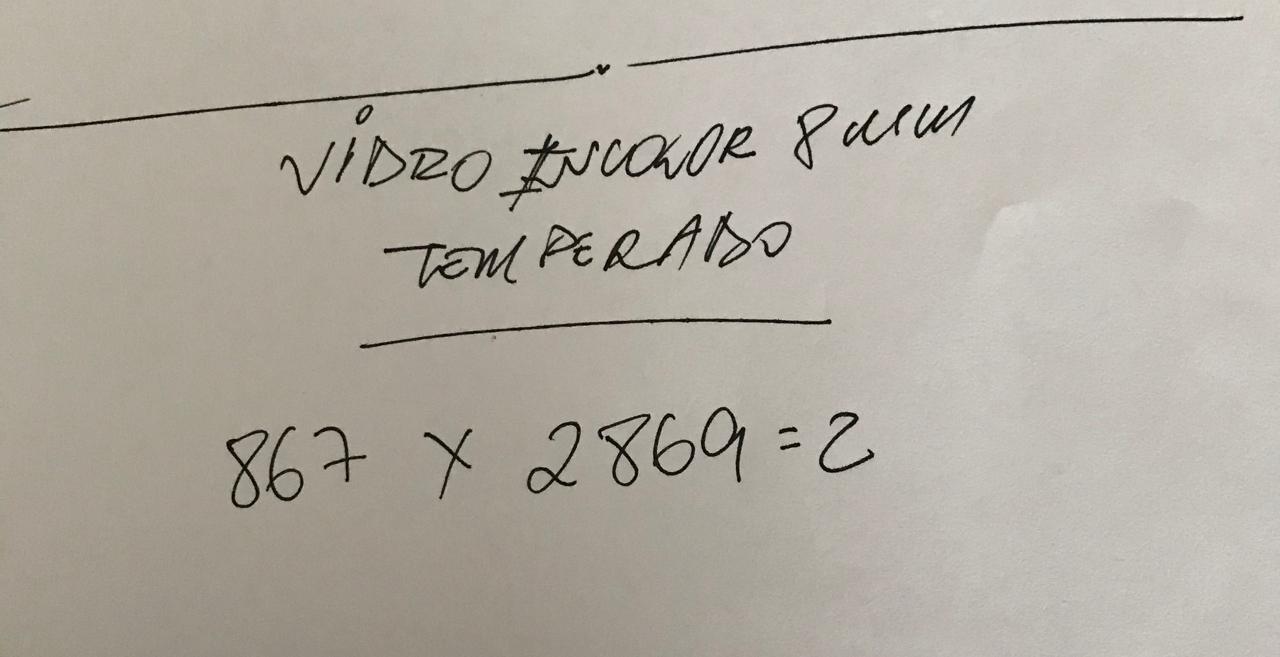 VIDRO INCOLOR 8mm
TEMPERADO
867 X 2869 = 2